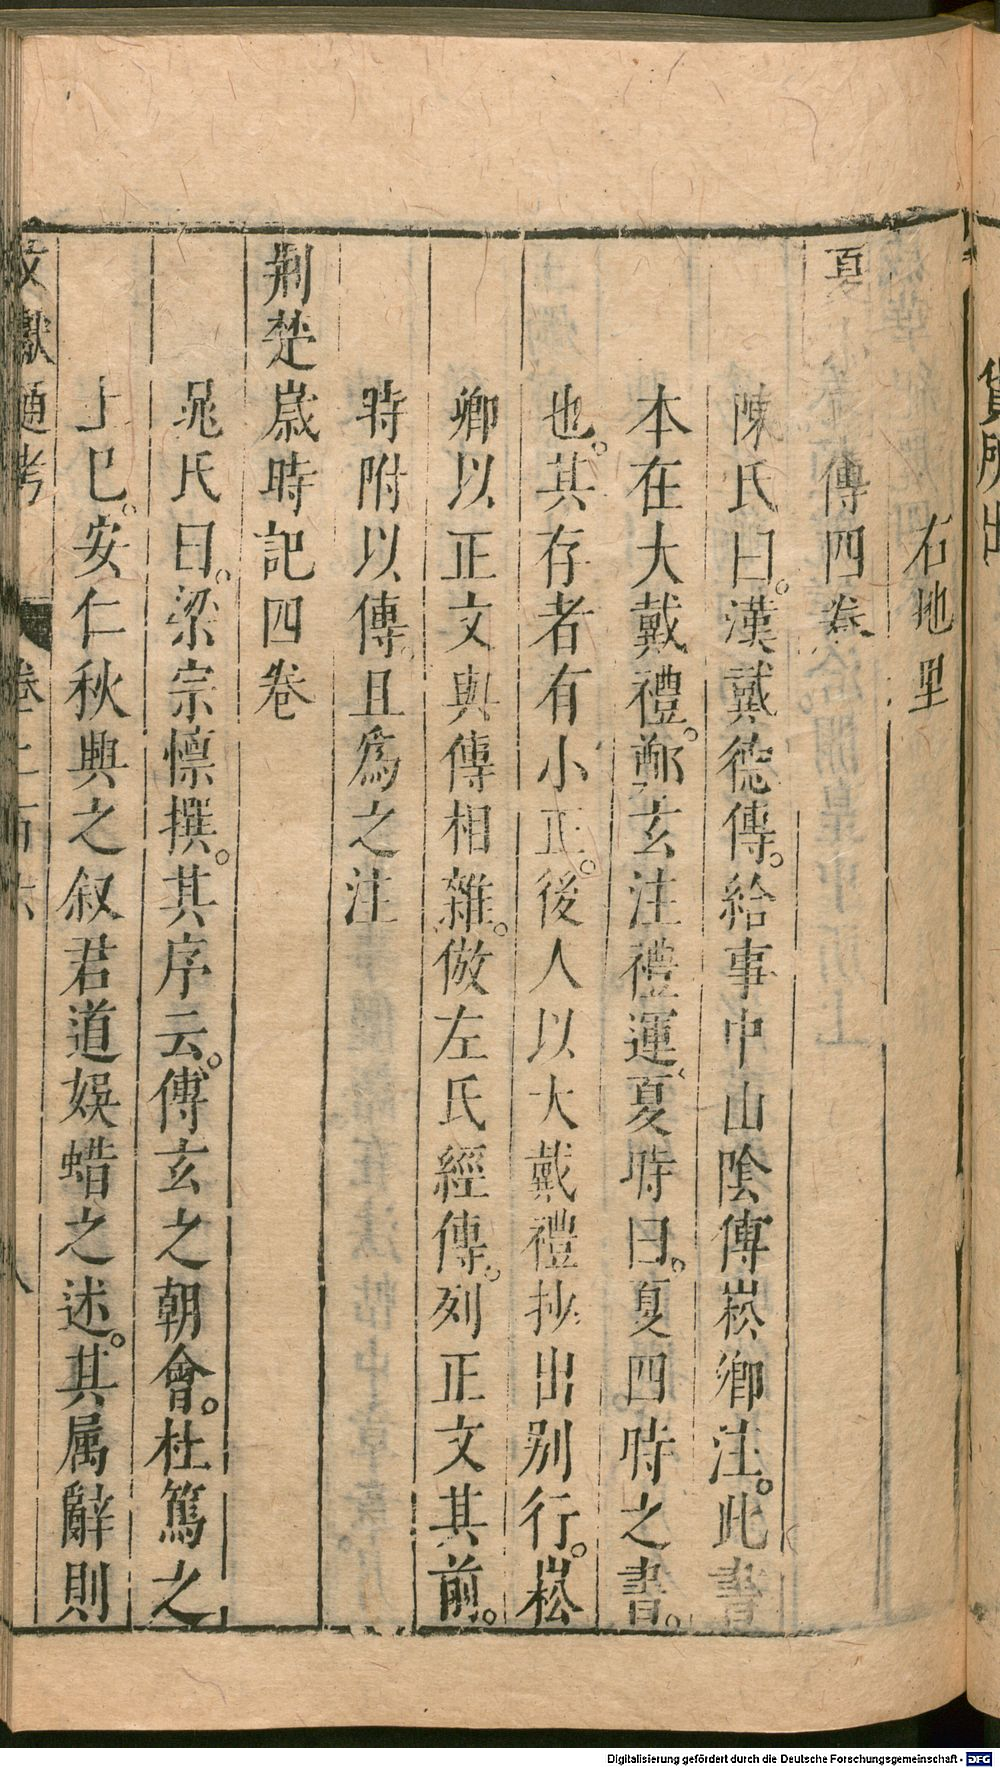 貨所出
右地里
夏小正傳四卷
陳氏曰。漢戴德傳。給事中山陰傅崧卿注。此書
本在大戴禮。鄭玄注禮運夏時曰。夏四時之書。
也。其存者有小正。後人以大戴禮抄出别行。崧
卿以正文與傳相雜。倣左氏經傳。列正文其前。
時附以傳。且爲之注
荆楚嵗時記四卷
晁氏曰。梁宗懍撰。其序云。傅玄之朝會。杜篤之
上巳。安仁秋興之叙君道娱蜡之述。其属辭則
文獻通考 卷二百六 八
Digitalisierung gefördert durch die Deutsche Forschungsgemeinschaft - DFG